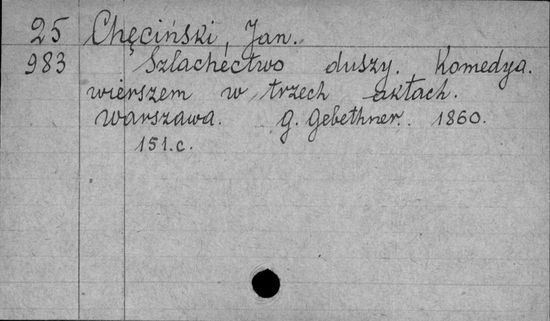 25 Chęciński, Jan.
983 Szlachectwo duszy. Komedya.
wierszem w trzech aktach.
Warszawa. G. Gebethner. 1860.
151.c.